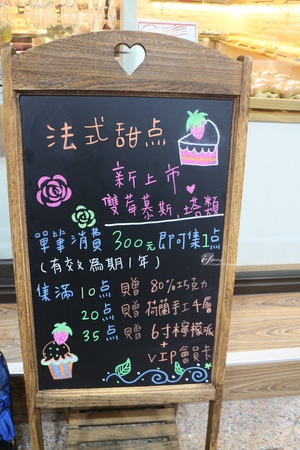 法式甜点
新上市
雙莓慕斯、塔類
單筆消費 300元即可集1点
(有效為期1年)
集滿 10点 貝贈 80%巧克力
20点 貝贈 荷蘭手工4層
35点 貝贈 6寸檸檬派
+
VIP會員卡